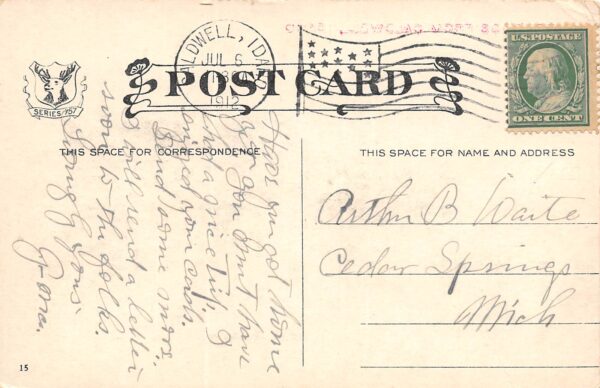 CALDWELL, IDAHO
JUL 6
1912
U.S. POSTAGE
ONE CENT
SERIES 757
POST CARD
THIS SPACE FOR CORRESPONDENCE
THIS SPACE FOR NAME AND ADDRESS
Have you got home
or you don't have
had a nice trip, I
enjoyed your cards.
Send some more.
I will send a letter
soon to the folks.
Lovingly yours
G-ma.
Arthur B Waite
Cedar Springs
Mich
15